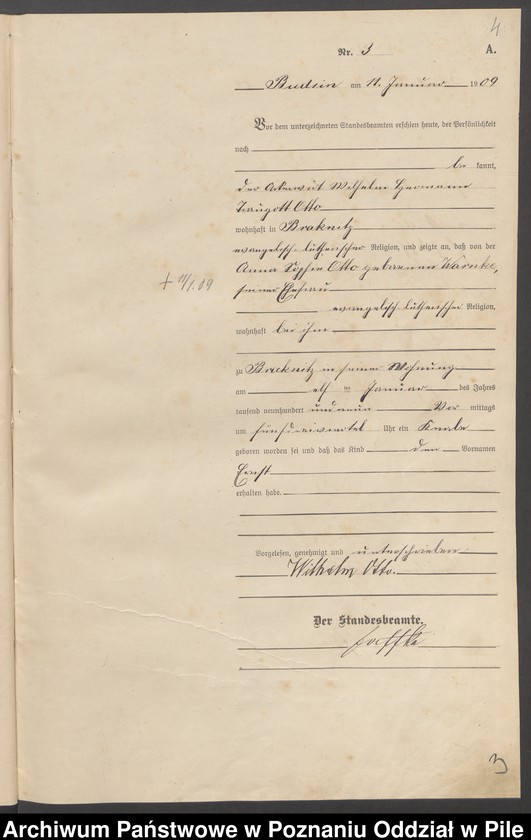 4
Nr. 3 A.
Budsin am 11. Januar 1909
Vor dem unterzeichneten Standesbeamten erschien heute, der Persönlichkeit
nach
be kannt,
der Wilhelm Hermann
Traugott Otto
wohnhaft in Braknitz
evangelisch-lutherischer Religion, und zeigte an, daß von der
Anna Sophie Otto geborenen Warnke,
seiner Ehefrau
evangelisch-lutherischer Religion,
wohnhaft bei ihm
+ 11/1. 09
zu Braknitz in seiner Wohnung
am elf ten Januar des Jahres
tausend neunhundert und neun Vor mittags
um fünf dreiviertel Uhr ein Knabe
geboren worden sei und daß das Kind den Vornamen
Ernst
erhalten habe.
Vorgelesen, genehmigt und unterschrieben
Wilhelm Otto.
Der Standesbeamte.
3
Archiwum Państwowe w Poznaniu Oddział w Pile